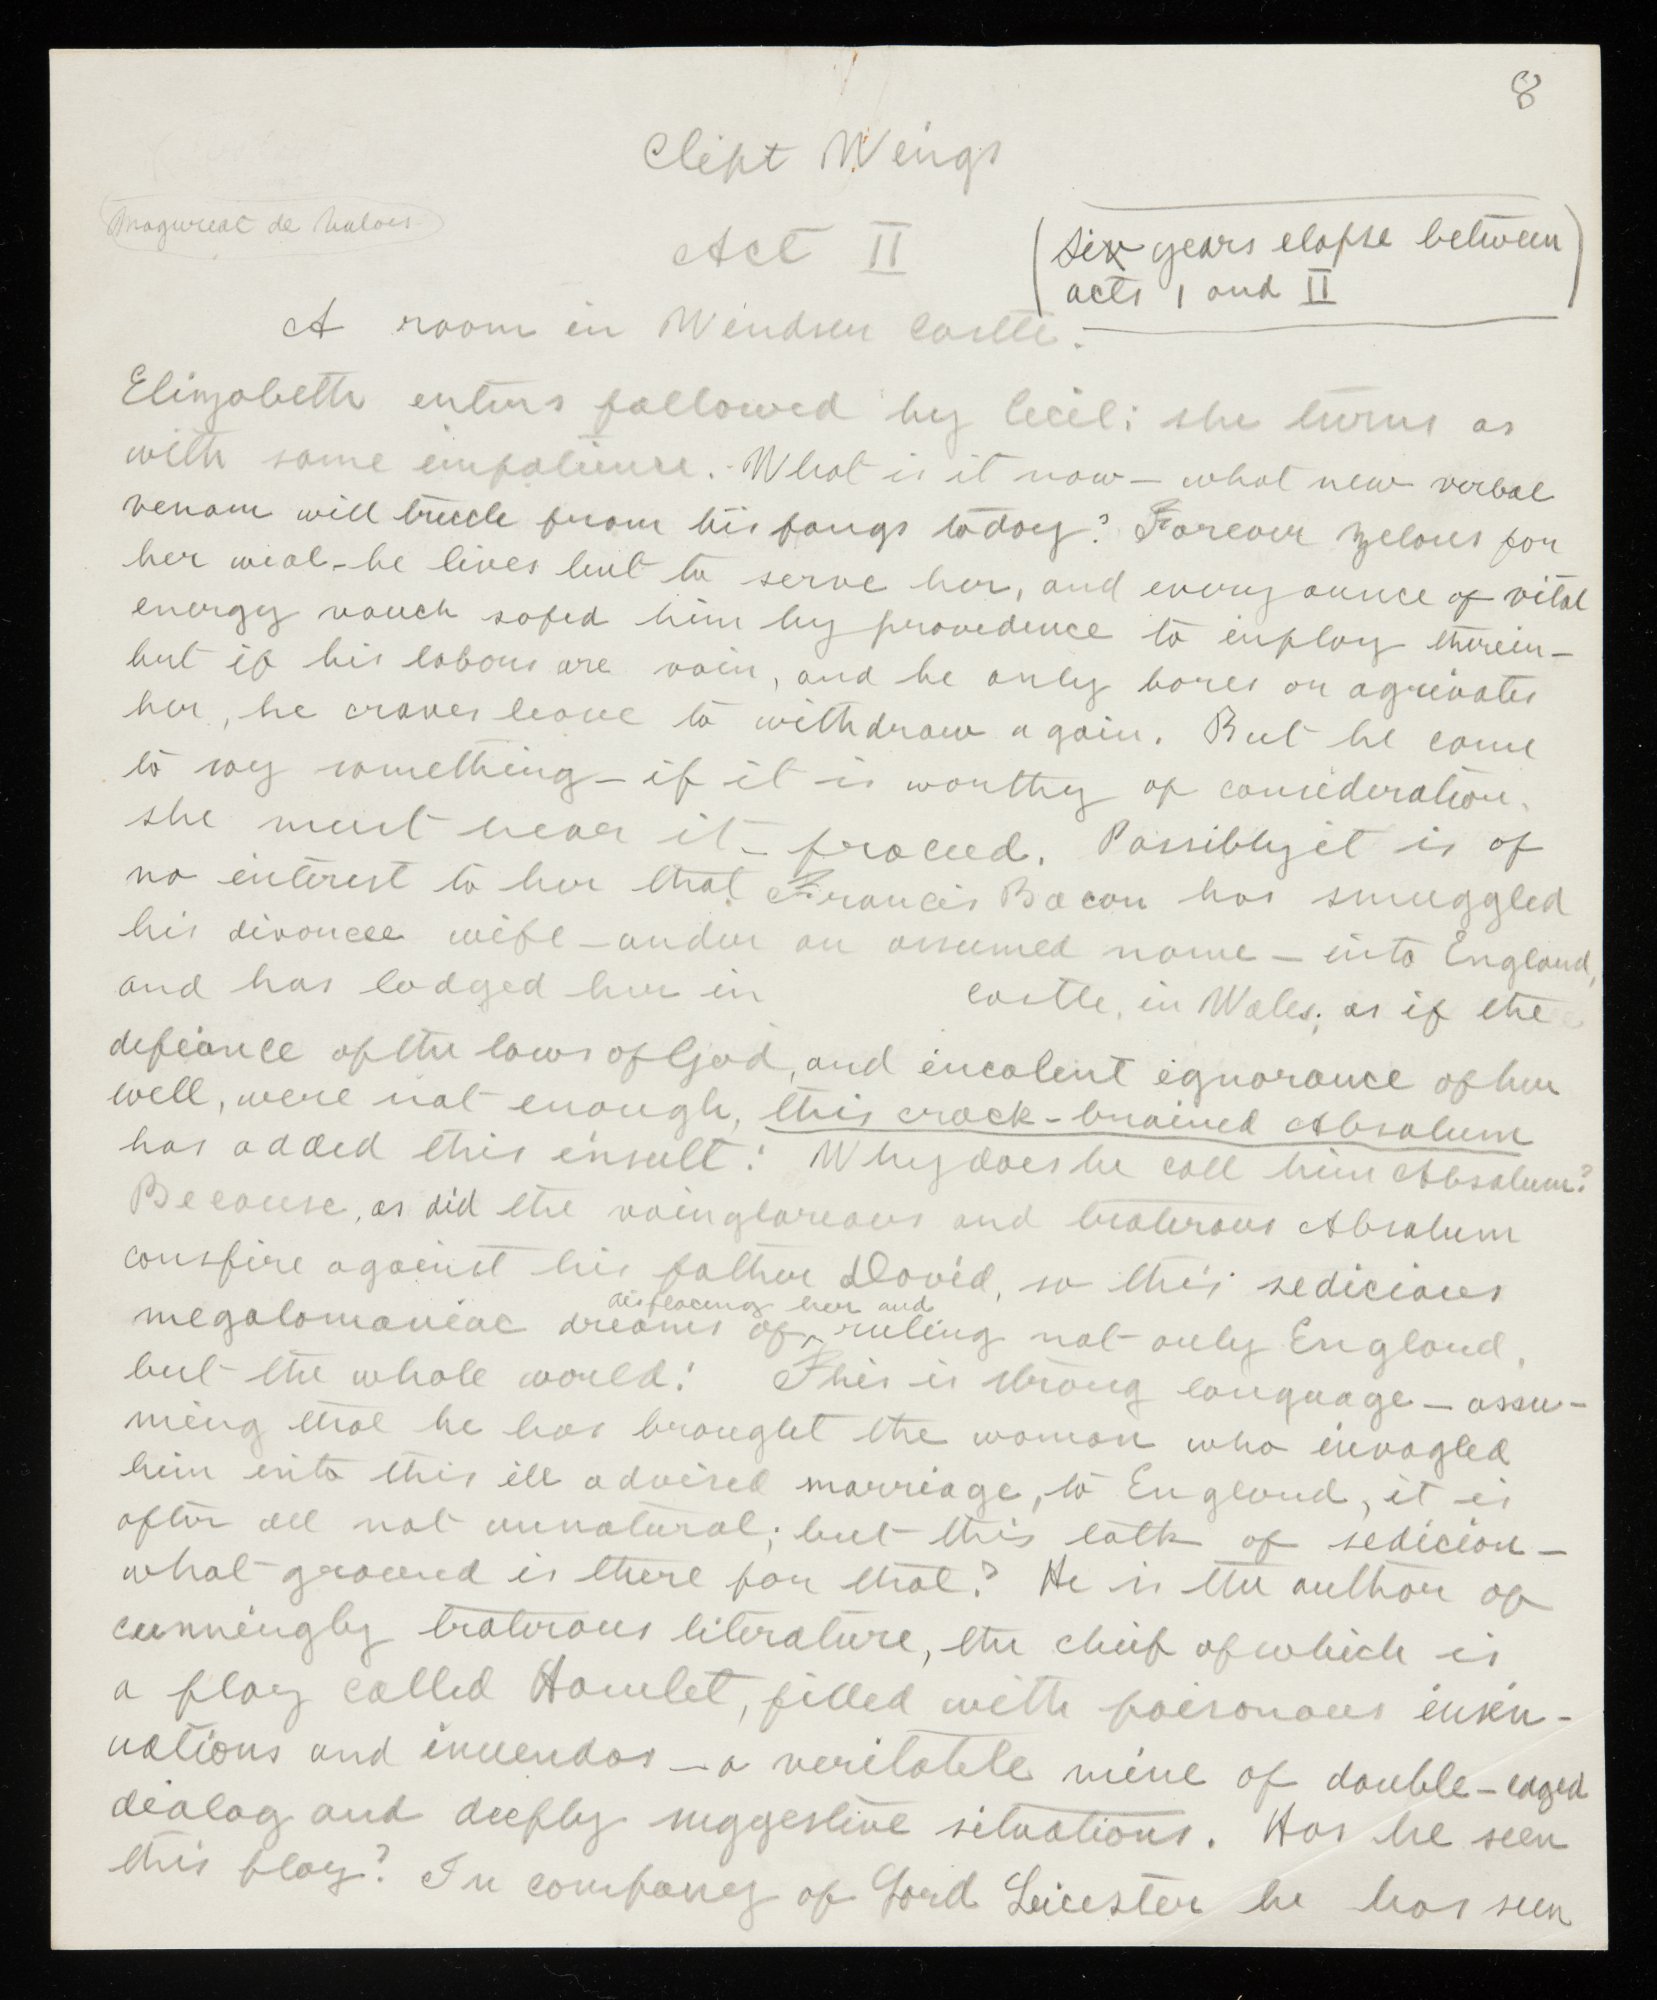 8
Clipt Wings
Magureat de Valois.
Act II
(Six years elapse between
acts I and II)
A room in Windsor Castle.
Elizabeth enters followed by Cecil; she turns as
with some impatience. What is it now – what new verbal
venom will trickle from his fangs today? Forever zelous for
her weal – he lives but to serve her, and every ounce of vital
energy vouch safed him by providence to employ therein –
but if his labors are vain, and he only bores or agrivates
her, he craves leave to withdraw again. But he came
to say something – if it is worthy of consideration,
she must hear it – proceed. Possibly it is of
no interest to her that Francis Bacon has smuggled
his divorcee wife – under an assumed name – into England,
and has lodged her in castle, in Wales; as if the
defiance of the laws of God, and insolent ignorance of her
well, were not enough, this crack-brained Absalum
has added this insult! Why does he call him Absalum?
Because, as did the vaingloreous and traterous Absalum
conspire against his father David, so this sedicious
megalomaniac dreams of displacing her and ruling not only England,
but the whole world! This is strong language – assu-
ming that he has brought the woman who invagled
him into this ill advised marriage, to England, it is
after all not unnatural; but this talk of sedicion –
what ground is there for that? He is the author of
cunningly traterous literature, the chief of which is
a play called Hamlet, filled with poisonous insin-
uations and inuendos – a veritable mine of double-edged
dialog and deeply suggestive situations. Has he seen
this play? In company of Lord Leicester he has seen